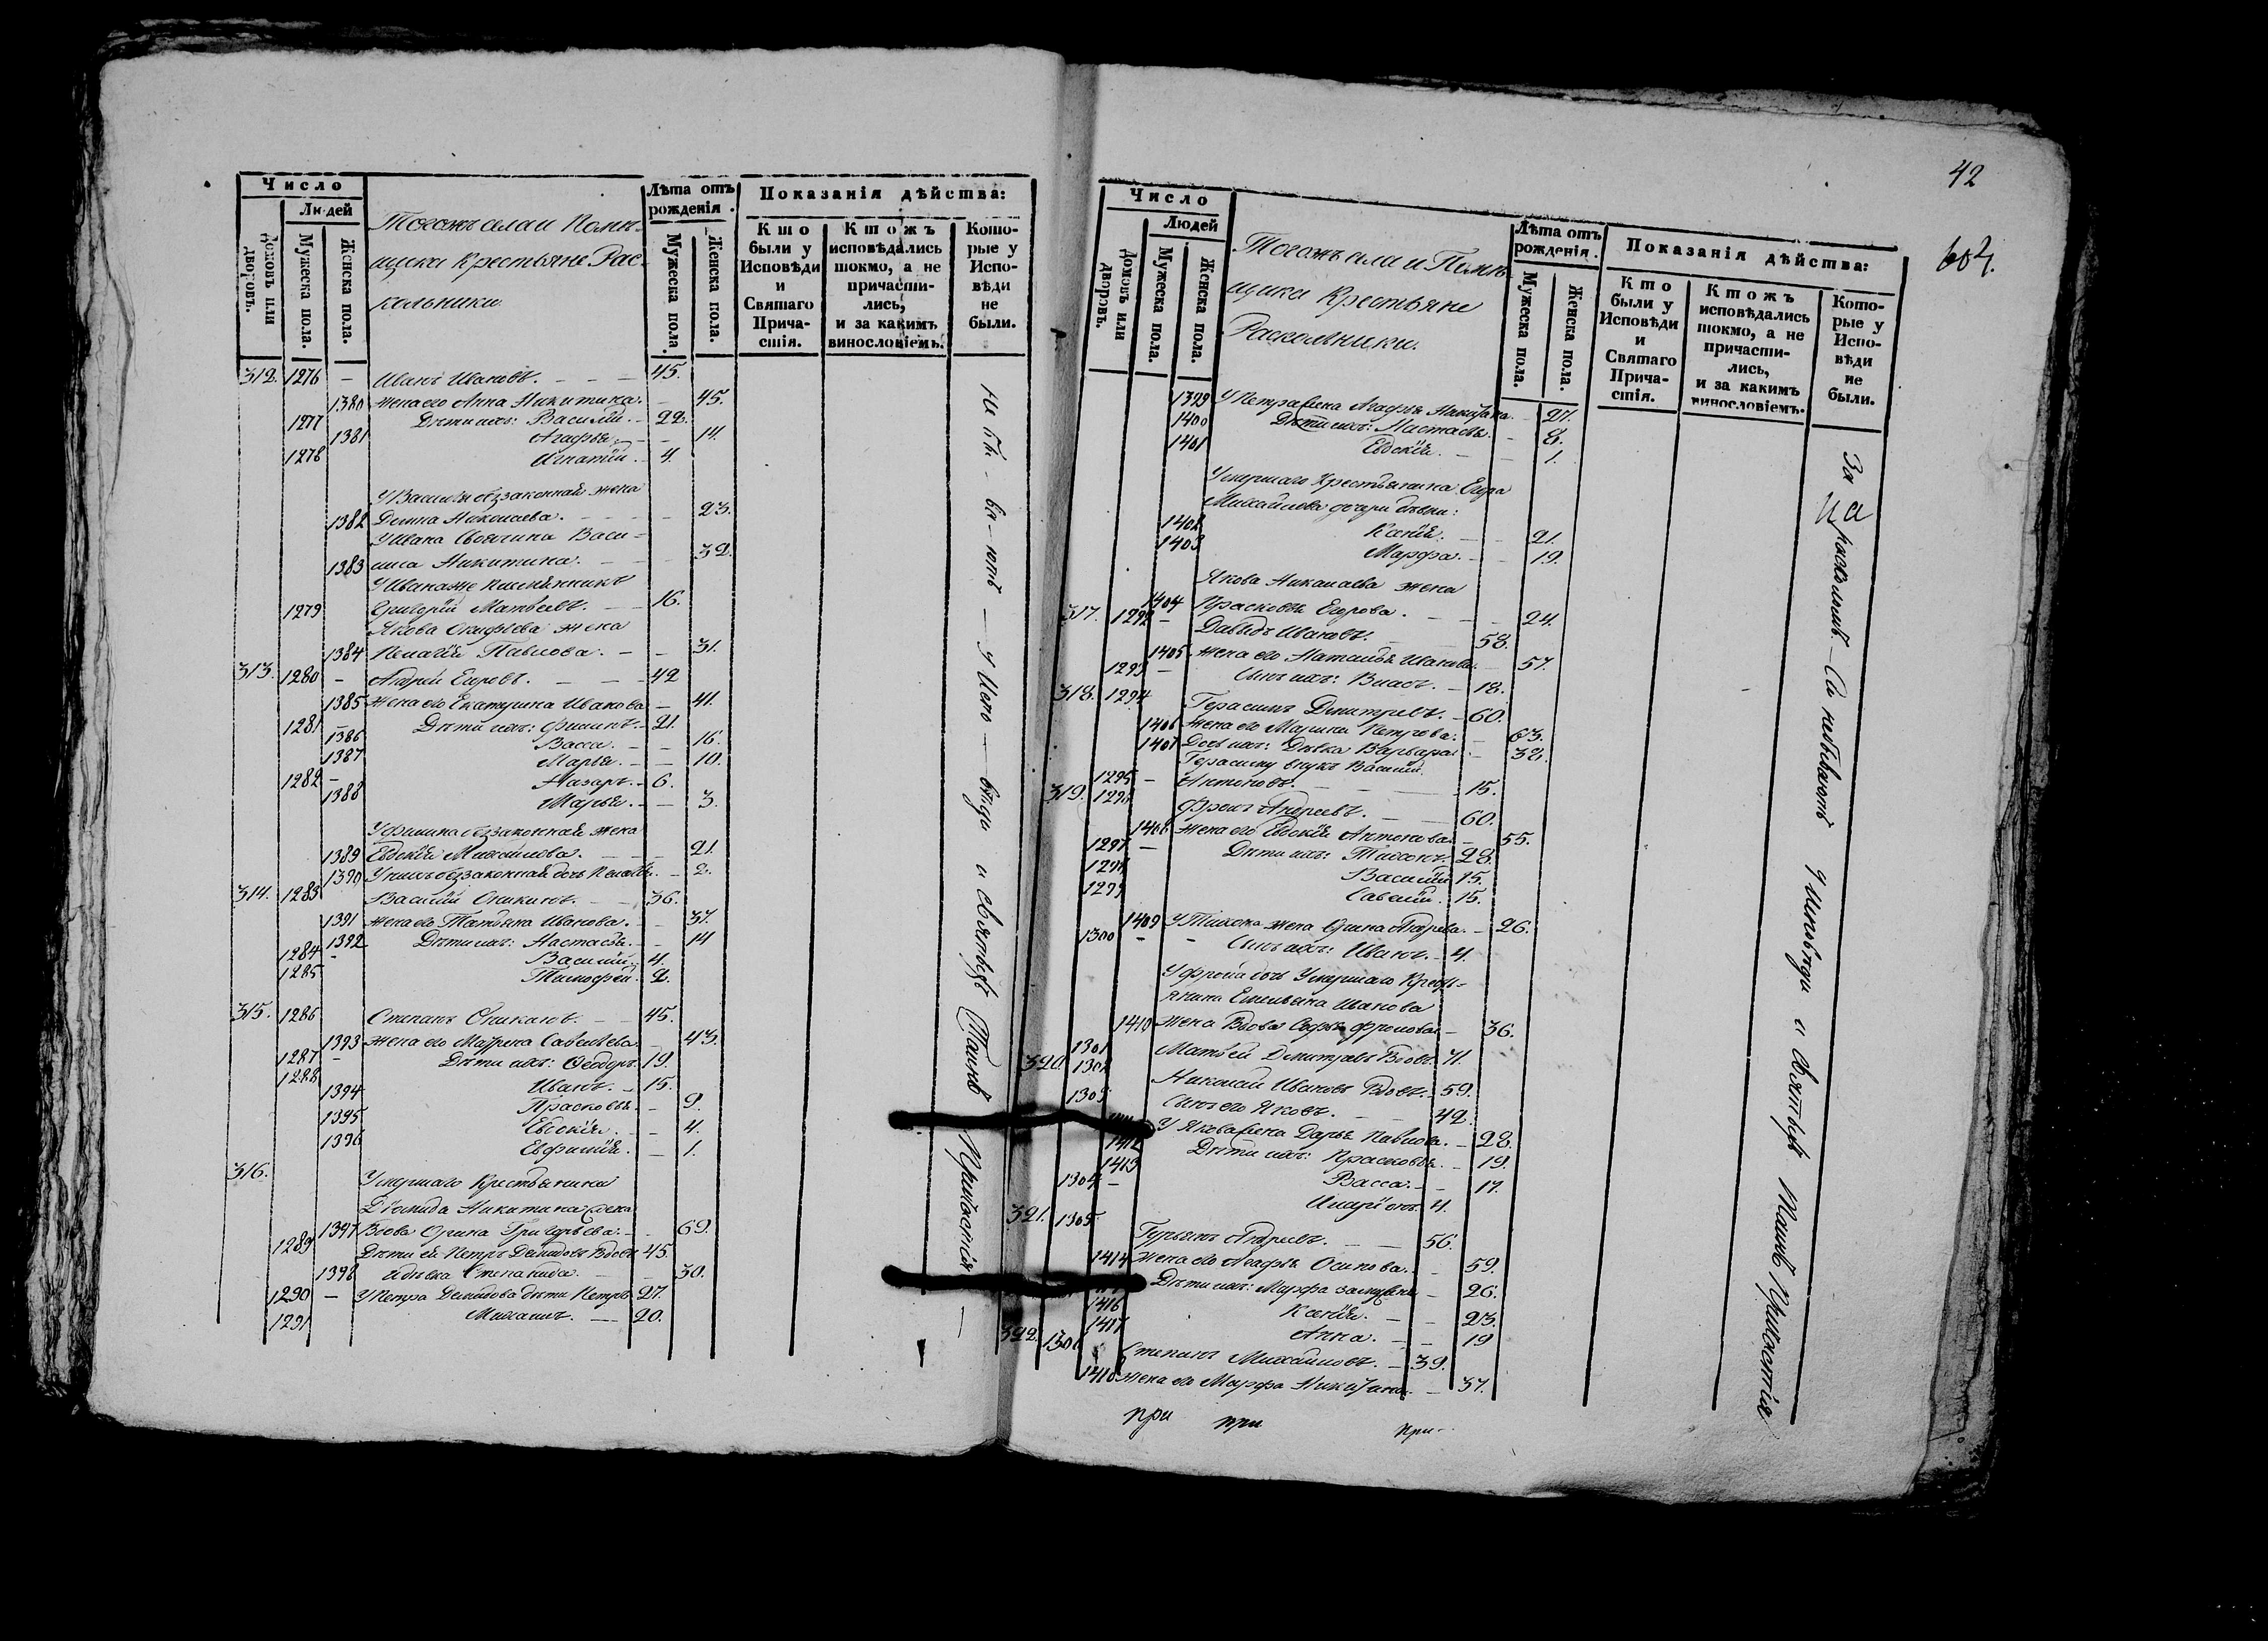 Число
Людей
Домовъ или дворовъ.
Мужеска пола.
Женска пола.
Тогожъ села и Помѣ-
щика Крестьяне Рас-
кольники
Лѣта отъ рожденія.
Мужеска пола.
Женска пола.
Показанія дѣйства:
Кто были у Исповѣди и Святаго Прича-стія.
Ктожъ исповѣдались токмо, а не причасти-лись, и за какимъ винословіемъ.
Кото-рые у Испо-вѣди не были.
312. 1276 – Иванъ Ивановъ. – – – 45.
1380 жена его Анна Никитина. – 45.
1277 Дѣти ихъ: Василій. – 22.
1381 Агафья – – 14.
1278 Игнатій. – 4.
У Василья беззаконная жена
1382 Домна Николаева. – – – – 23.
У Ивана Своячина Васи-
1383 лиса Никитина. – – – 32.
У Иванаже племянникъ
1279 Григорій Матвеевъ. – – 16.
Якова жена
1384 Пелагія Павлова. – – 31.
313. 1280 – Андрей Егоровъ. – – – 42
1385 жена его Екатерина Иванова – 41.
1281 – Дѣти ихъ: Филипъ. – 21.
1386 Васса. – – 16.
1387 Марья. – – 10.
1282 – Назаръ. – 6.
1388 Марья. – – 3.
У Филипа беззаконная жена
1389 Евдокія Михайлова. – – – 21.
1390 У нихъ беззаконная дочь – 2.
314. 1283 Василій – 36.
1391 жена его Татьяна Иванова. – 37.
1392 Дѣти ихъ: Настасья. – 14
1284 – Василій. 4.
1285 Тимофей. 2.
315. 1286 Степанъ – – 45.
1393 жена его Матрена Савельева – 43.
1287 – Дѣти ихъ: Феодоръ. 19.
1288 Иванъ. – 15.
1394 Прасковья. – 9.
1395 Евдокія. – – 4.
1396 Евфимія. – 1.
316. Умершаго Крестьянина
Діомида Никитина жена
1397 Вдова Орина Григорьева. – – 69.
1289 Дѣти ея Петръ Демидовъ Вдовъ 45.
1398 и дѣвка Степанида. – – 30.
1290 – У Петра Демидова дѣти Петръ. 27.
1291 Михаилъ. – – 20.
у Исповѣди и святыхъ Таинъ Причастія
42
604.
Число
Людей
Домовъ или дворовъ.
Мужеска пола.
Женска пола.
Тогожъ села и Помѣ-
щика Крестьяне
Раскольники.
Лѣта отъ рожденія.
Мужеска пола.
Женска пола.
Показанія дѣйства:
Кто были у Исповѣди и Святаго Прича-стія.
Ктожъ исповѣдались токмо, а не причасти-лись, и за какимъ винословіемъ.
Кото-рые у Испо-вѣди не были.
1399 У Петра жена Агафья Никитина. – 27.
1400 Дѣти ихъ: Настасья. – 8.
1401 Евдокія. – – 1.
Умершаго Крестьянина Егора
Михайлова дочери дѣвки:
1402 Ксенія. – – 21.
1403 Марфа. – – 19.
Якова Николаева жена
1404 Прасковья Егорова. – – – 24.
317. 1292 – Давыдъ Ивановъ. – – 58.
1405 жена его Наталья Иванова. – 57.
1293 – Сынъ ихъ: Власъ. – 18.
318. 1294 Герасимъ Дмитріевъ. – 60.
1406 жена его Марина Петрова. – 63.
1407 Дочь ихъ: Дѣвка Варвара. – 32.
Герасиму внукъ Василій
1295 – Антиповъ. – – – 15.
319. 1296 Фролъ Андреевъ. – – 60.
1408 жена его Евдокія Антонова – 55.
1297 – Дѣти ихъ: Тихонъ. 28.
1298 Василій 15.
1299 Савелій. 15.
1409 У Тихона жена Орина – 26.
1300 – Сынъ ихъ: Иванъ. – 4.
У Фрола дочь Умершаго Кресть-
янина Емельяна Иванова
1410 жена Вдова Софья Фролова – 36.
1301 Матвей Дмитріевъ Вдовъ. 71.
320. 1302 Николай Ивановъ Вдовъ. 59.
1303 Сынъ его Яковъ. – – 42.
У Якова жена Дарья Павлова. – 28.
1412 Дѣти ихъ: Прасковья. – 19.
1413 Васса. – – 17.
1304 – Иларіонъ 4.
321. 1305 Гурьянъ Андреевъ. – – 56.
1414 жена его Агафья Осипова. – 59.
Дѣти ихъ: Марфа – 26.
1416 Ксенія. – – 23.
1417 Анна. – – 19
322. 1306 Степанъ Михайловъ. – 39.
1418 жена его Марфа Никитина – 37.
За расколомъ у Исповѣди и святыхъ Таинъ Причастія
при при при